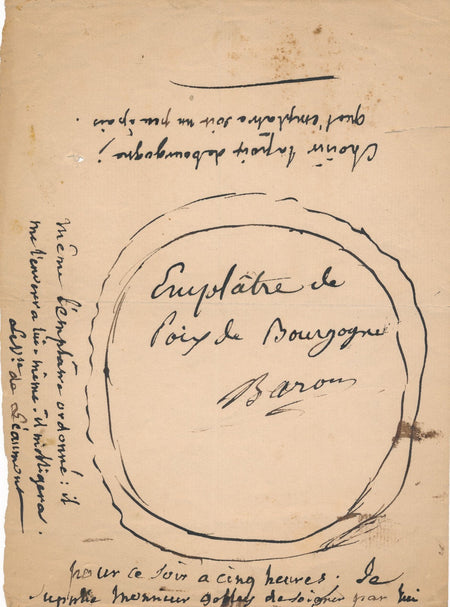 Emplâtre de
Poix de Bourgogne
Baron
pour ce soir à cinq heures : Je
supplie Monsieur de soigner par lui
même l'emplâtre ordonné : il
me l'enverra lui-même. il m'obligera.
de Léaumont
Choisir la poix de bourgogne ;
que l'emplatre soit un peu épais.